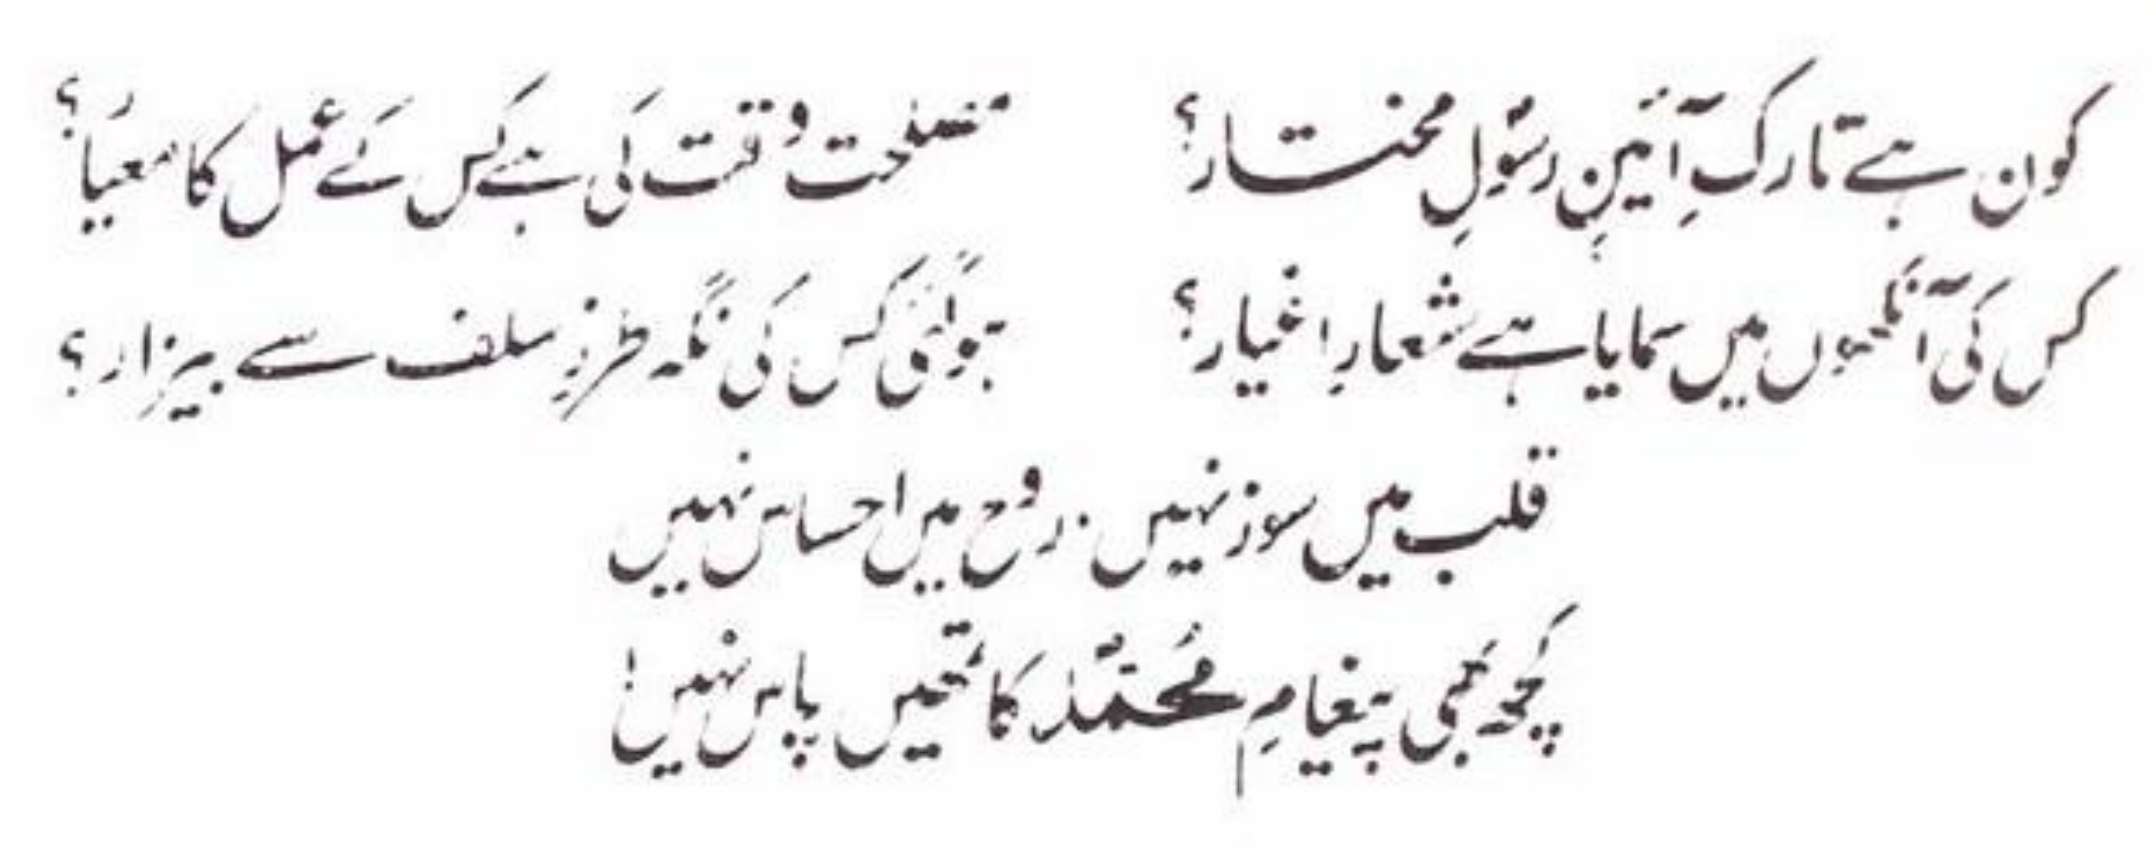 کون ہے تارکِ آئینِ رسُولِ مختار؟ مصلحت وقت کی ہے کِس کے عمل کا معیار؟
کس کی آنکھوں میں سمایا ہے شعارِ اغیار؟ ہوگئی کس کی نگہ طرزِ سلف سے بیزار؟
قلب میں سوز نہیں، رُوح میں احساس نہیں
کچھ بھی پیغامِ مُحمّدؐ کا تمھیں پاس نہیں!